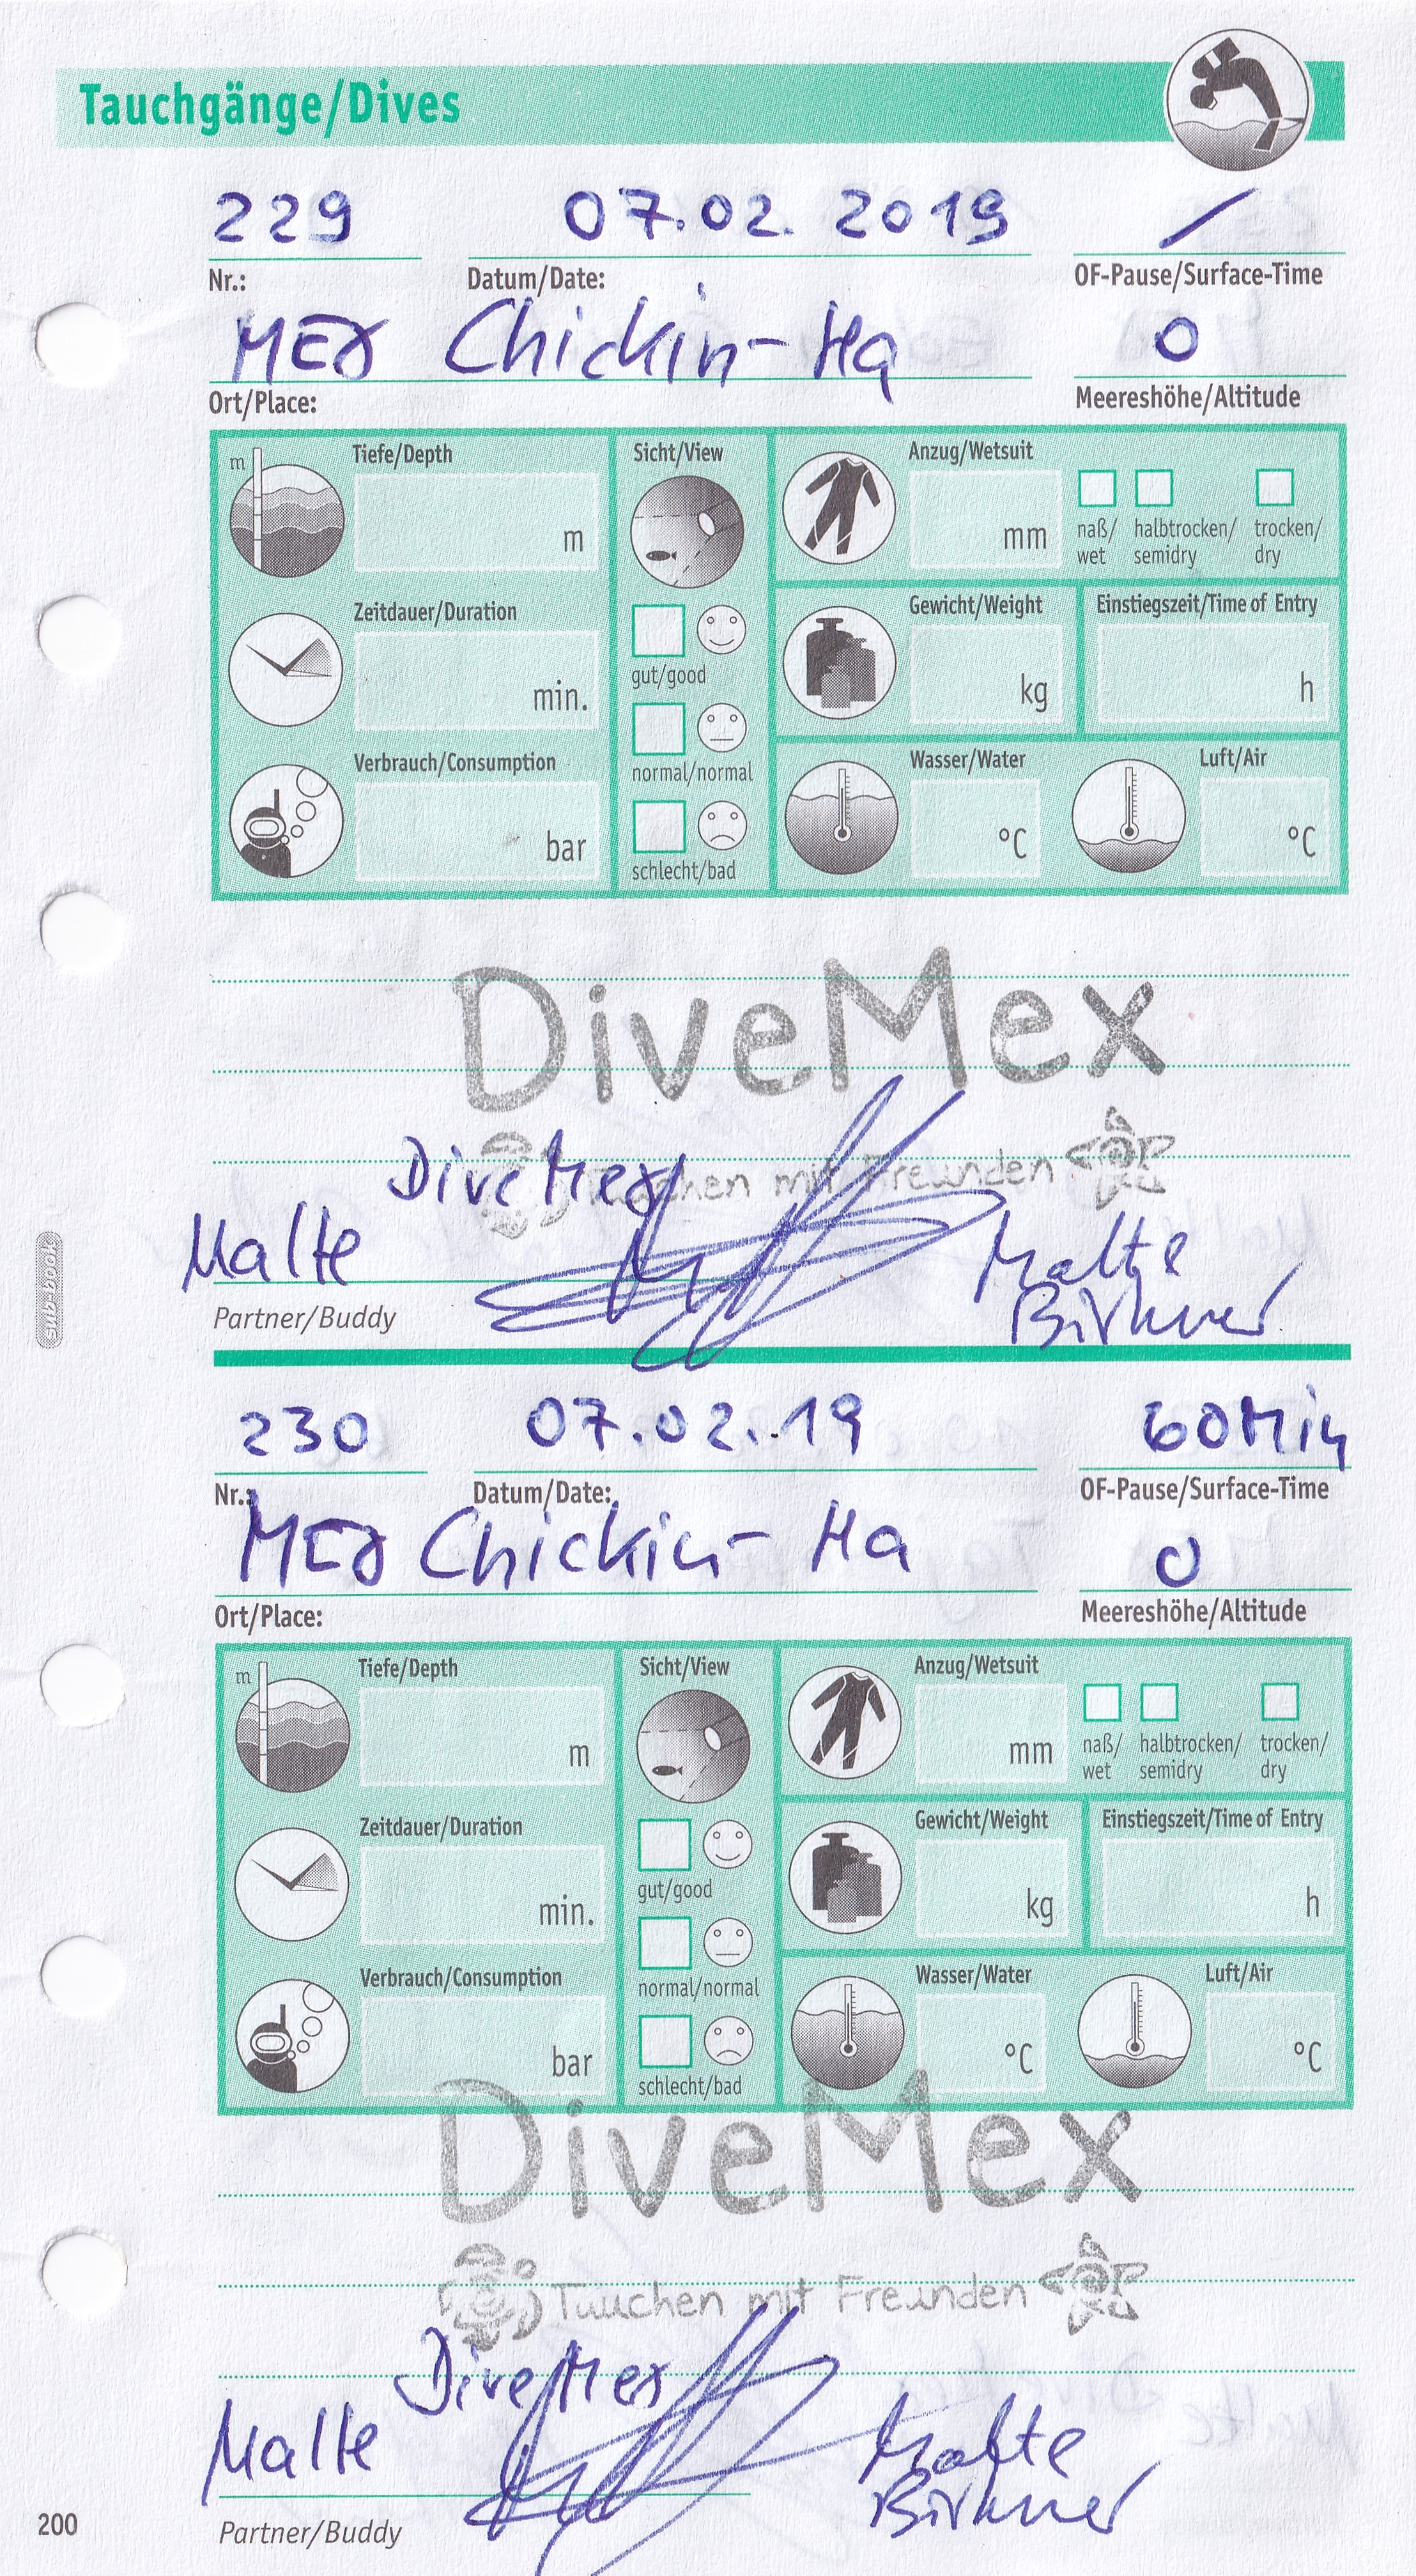 Tauchgänge/Dives
229 07.02.2019 /
Nr.: Datum/Date: OF-Pause/Surface-Time
MEX Chickin-Ha 0
Ort/Place: Meereshöhe/Altitude
m Tiefe/Depth Sicht/View Anzug/Wetsuit
m mm naß/ halbtrocken/ trocken/
wet semidry dry
Zeitdauer/Duration Gewicht/Weight Einstiegszeit/Time of Entry
gut/good
min. kg h
Verbrauch/Consumption normal/normal Wasser/Water Luft/Air
bar °C °C
schlecht/bad
DiveMex
DiveMex Tauchen mit Freunden
Malte Malte
Birkner
Partner/Buddy
sub-book
230 07.02.19 60Min
Nr.: Datum/Date: OF-Pause/Surface-Time
MEX Chickin-Ha 0
Ort/Place: Meereshöhe/Altitude
m Tiefe/Depth Sicht/View Anzug/Wetsuit
m mm naß/ halbtrocken/ trocken/
wet semidry dry
Zeitdauer/Duration Gewicht/Weight Einstiegszeit/Time of Entry
gut/good
min. kg h
Verbrauch/Consumption normal/normal Wasser/Water Luft/Air
bar °C °C
schlecht/bad
DiveMex
Tauchen mit Freunden
DiveMex
Malte Malte
Birkner
200 Partner/Buddy